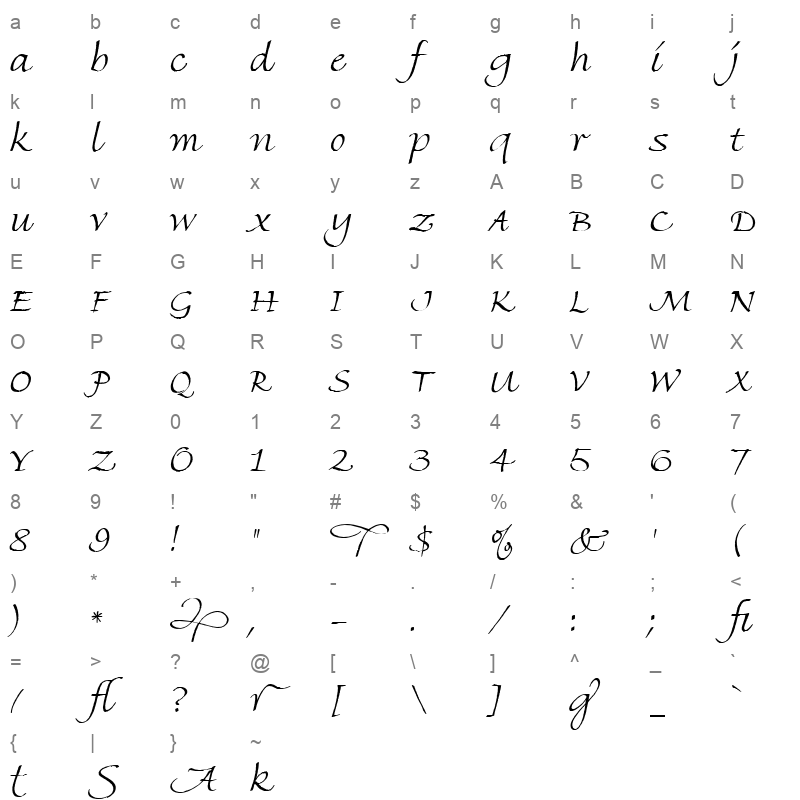 a b c d e f g h i j
a b c d e f g h i j
k l m n o p q r s t
k l m n o p q r s t
u v w x y z A B C D
u v w x y z A B C D
E F G H I J K L M N
E F G H I J K L M N
O P Q R S T U V W X
O P Q R S T U V W X
Y Z 0 1 2 3 4 5 6 7
Y Z 0 1 2 3 4 5 6 7
8 9 ! " # $ % & ' (
8 9 ! " T $ % & ' (
) * + , - . / : ; <
) * P , - . / : ; fi
= > ? @ [ \ ] ^ _ `
/ fl ? r [ \ ] g _ `
{ | } ~
t S A k